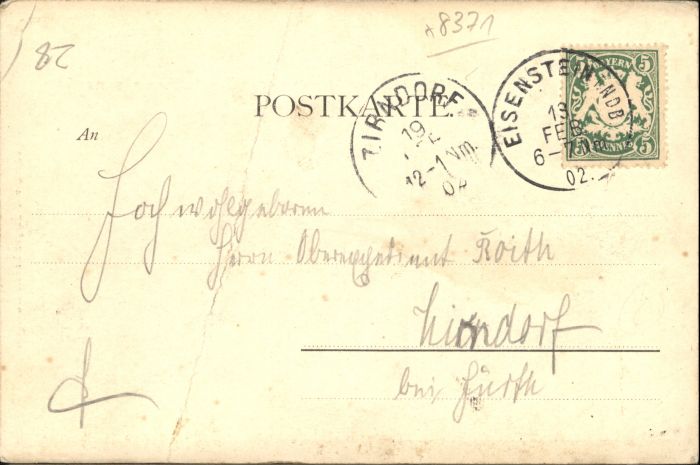 *8371
28
POSTKARTE.
An
ZIRNDORF
19
12-1 Nm.
02
EISENSTEIN
13
FEB
6-7 Nm.
02.
BAYERN
5 5
5 PFENNIG 5
Hochwohlgeboren
Herrn Oberexpeditor Roith
Zirndorf
bei Fürth